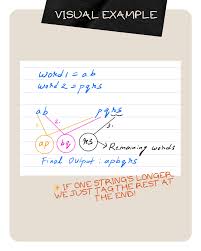 VISUAL EXAMPLE
word1 = ab
word2 = pqrs
ab pqrs
1. 2. 3.
ap bq rs → Remaining words
Final Output : apbqrs
* IF ONE STRING'S LONGER
WE JUST TAG THE REST AT
THE END!